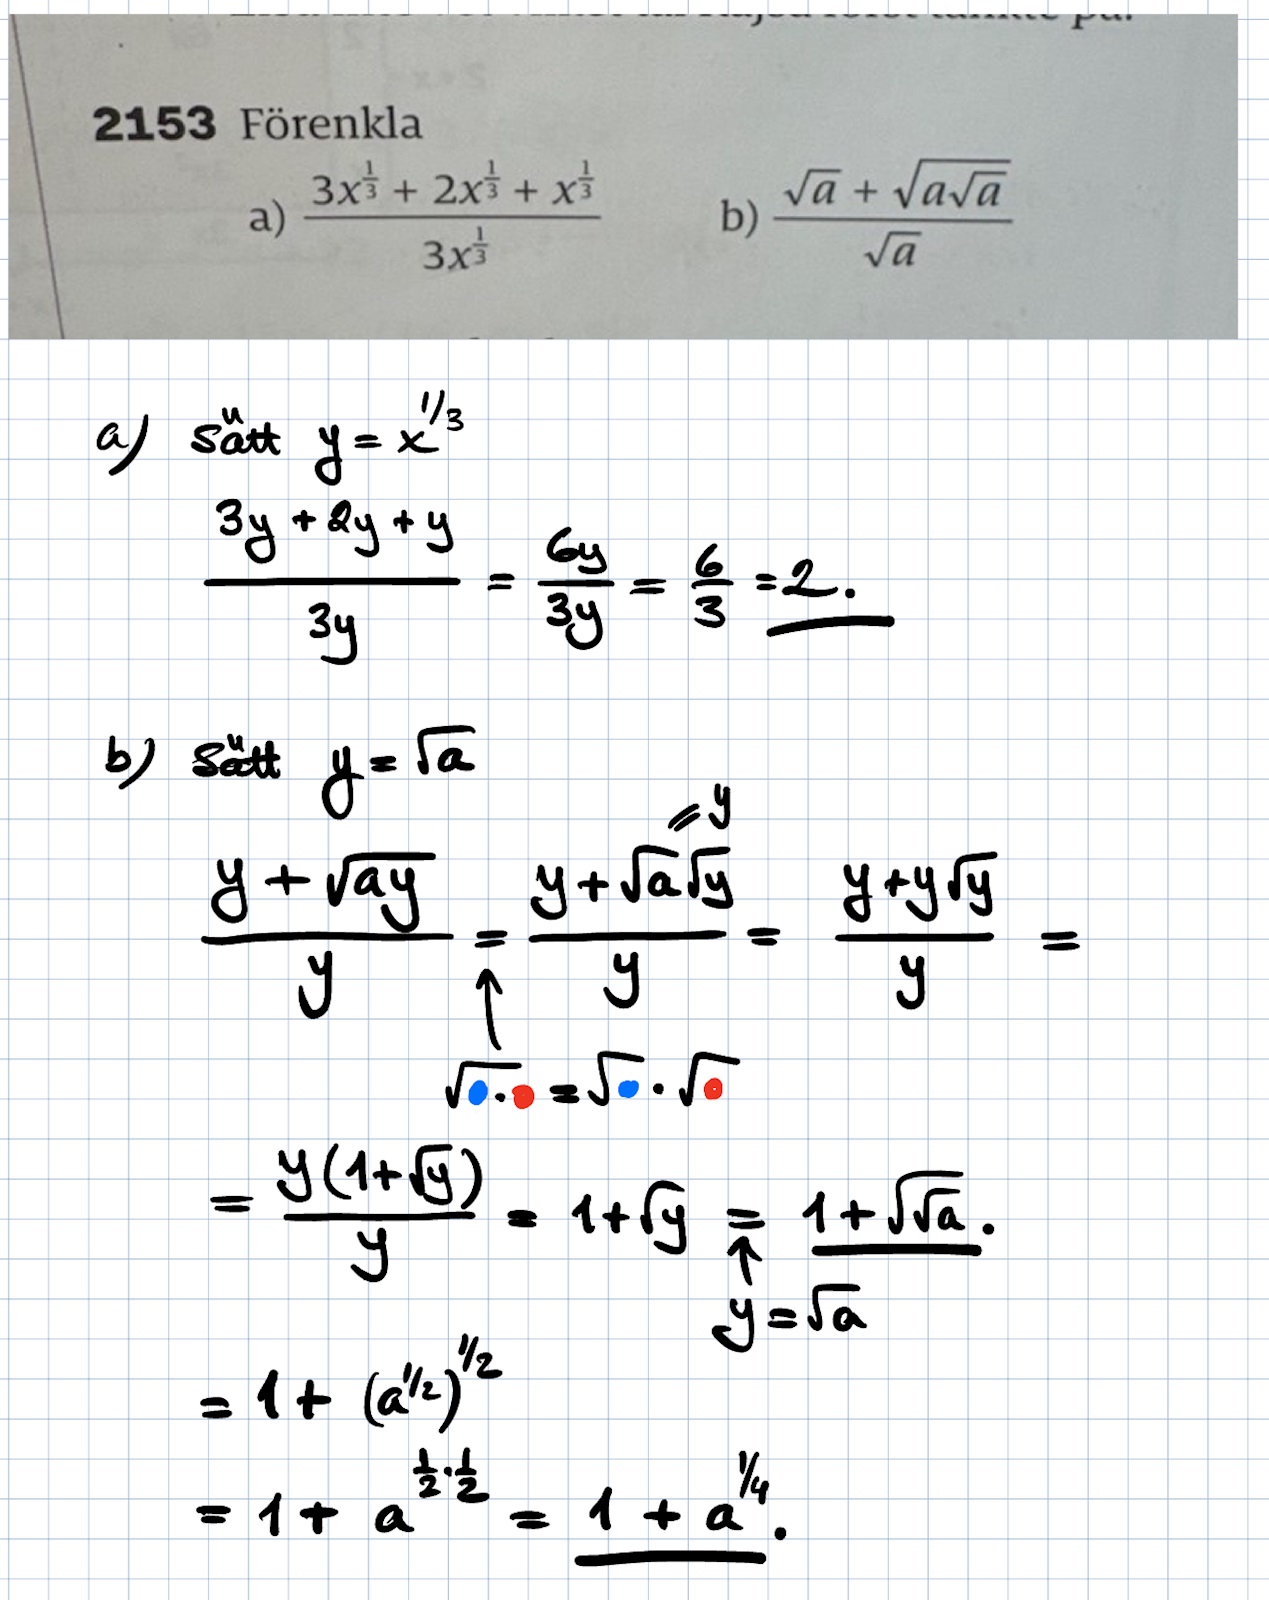 2153 Förenkla
a) \frac{3x^{\frac{1}{3}} + 2x^{\frac{1}{3}} + x^{\frac{1}{3}}}{3x^{\frac{1}{3}}} b) \frac{\sqrt{a} + \sqrt{a\sqrt{a}}}{\sqrt{a}}
a) Sätt y = x^{1/3}
\frac{3y + 2y + y}{3y} = \frac{6y}{3y} = \frac{6}{3} = 2.
b) Sätt y = \sqrt{a}
= y
\frac{y + \sqrt{ay}}{y} = \frac{y + \sqrt{a}\sqrt{y}}{y} = \frac{y + y\sqrt{y}}{y} =
\sqrt{● · ●} = \sqrt{●} · \sqrt{●}
= \frac{y(1 + \sqrt{y})}{y} = 1 + \sqrt{y} = 1 + \sqrt{\sqrt{a}}.
y = \sqrt{a}
= 1 + (a^{1/2})^{1/2}
= 1 + a^{\frac{1}{2} · \frac{1}{2}} = 1 + a^{1/4}.